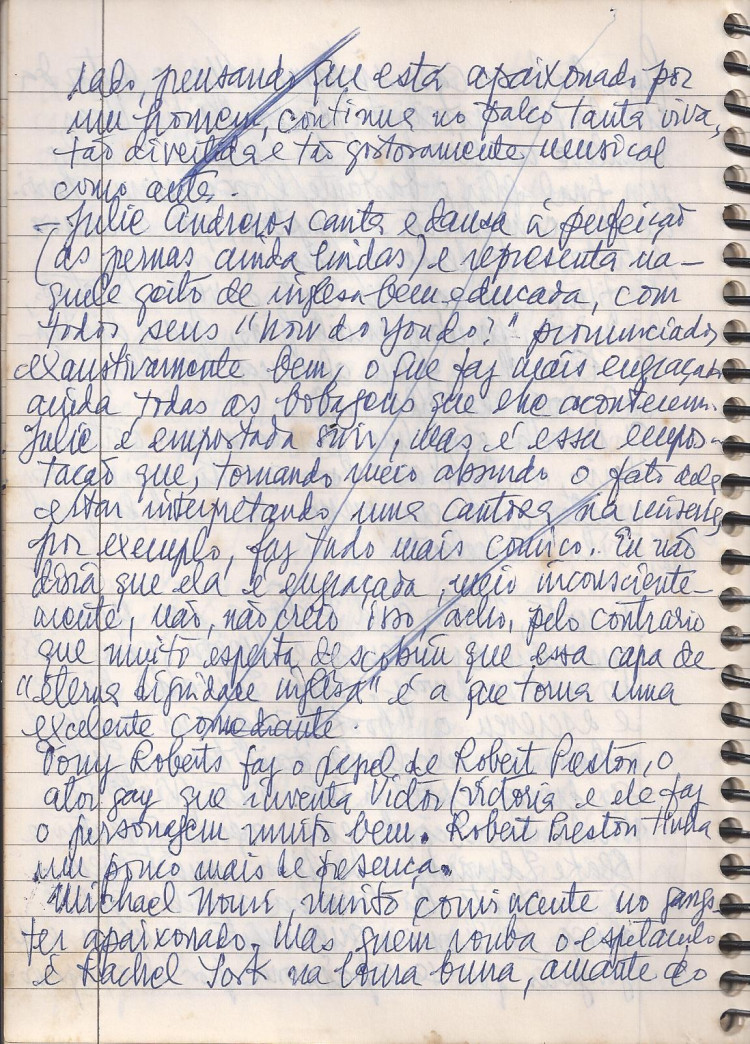 tado, pensando que está apaixonado por
um homem, continua no palco tanta viva,
tão divertida e tão gostosamente musical
como antes.
– Julie Andrews canta e dansa à perfeição
(as pernas ainda lindas) e representa na-
quele geito de inglesa bem educada, com
todos seus "how do you do?" pronunciados
exaustivamente bem, o que faz mais engraçado
ainda todas as bobagens que lhe acontecem.
Julie é empostada sim, mas é essa empos-
tação que, tornando meio absurdo o fato dela
estar interpretando uma cantora na miseria,
por exemplo, faz tudo mais comico. Eu não
diria que ela é engraçada, meio inconsciente-
mente, não, não creio isso, acho, pelo contrario
que muito esperta descobriu que essa capa de
"eterna dignidade inglesa" é a que torna uma
excelente comediante.
Tony Roberts faz o papel de Robert Preston, o
ator gay que inventa Victor/Victoria e ele faz
o personagem muito bem. Robert Preston tinha
um pouco mais de presença.
Michael Nouri, muito convincente no gangs-
ter apaixonado. Mas quem rouba o espetaculo
é Rachel York na loura burra, amante do